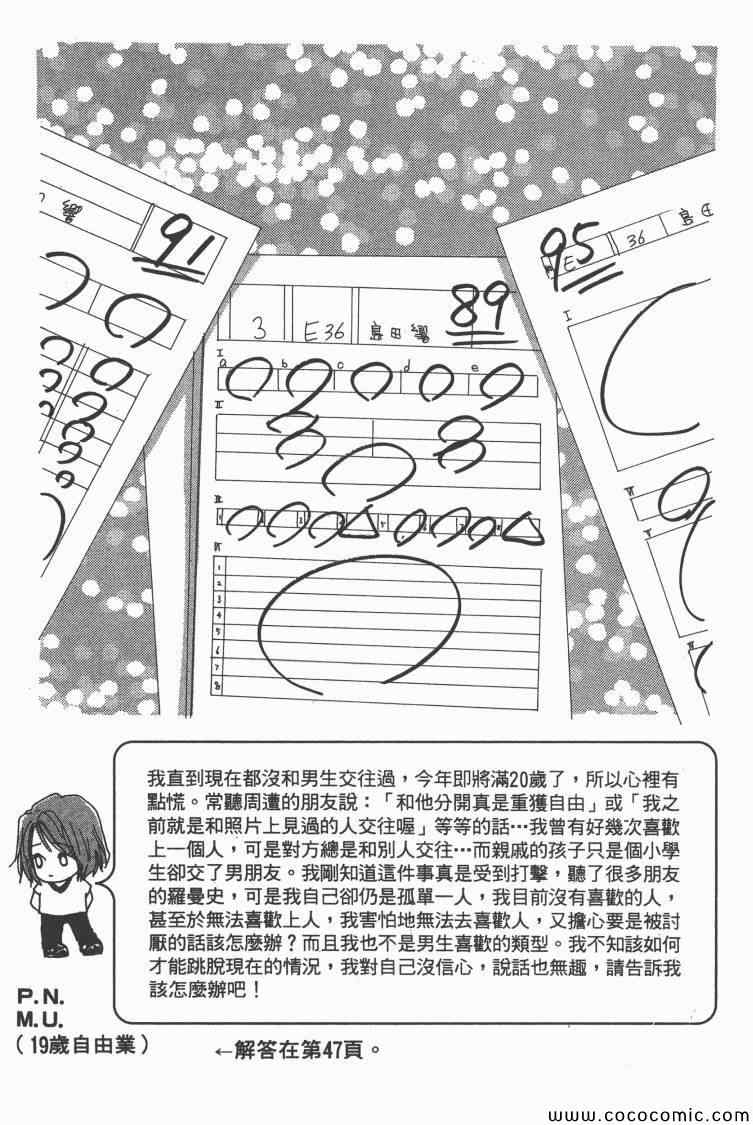 響
91
3
E36
島田響
89
I
a
b
c
d
e
II
III
IV
1
2
3
4
5
6
7
8
95
E
36
島田
I
我直到現在都沒和男生交往過，今年即將滿20歲了，所以心裡有
點慌。常聽周遭的朋友說：「和他分開真是重獲自由」或「我之
前就是和照片上見過的人交往喔」等等的話⋯我曾有好幾次喜歡
上一個人，可是對方總是和別人交往⋯而親戚的孩子只是個小學
生卻交了男朋友。我剛知道這件事真是受到打擊，聽了很多朋友
的羅曼史，可是我自己卻仍是孤單一人，我目前沒有喜歡的人，
甚至於無法喜歡上人，我害怕地無法去喜歡人，又擔心要是被討
厭的話該怎麼辦？而且我也不是男生喜歡的類型。我不知該如何
才能跳脫現在的情況，我對自己沒信心，說話也無趣，請告訴我
該怎麼辦吧！
P.N.
M.U.
（19歲自由業）
←解答在第47頁。
www.cococomic.com